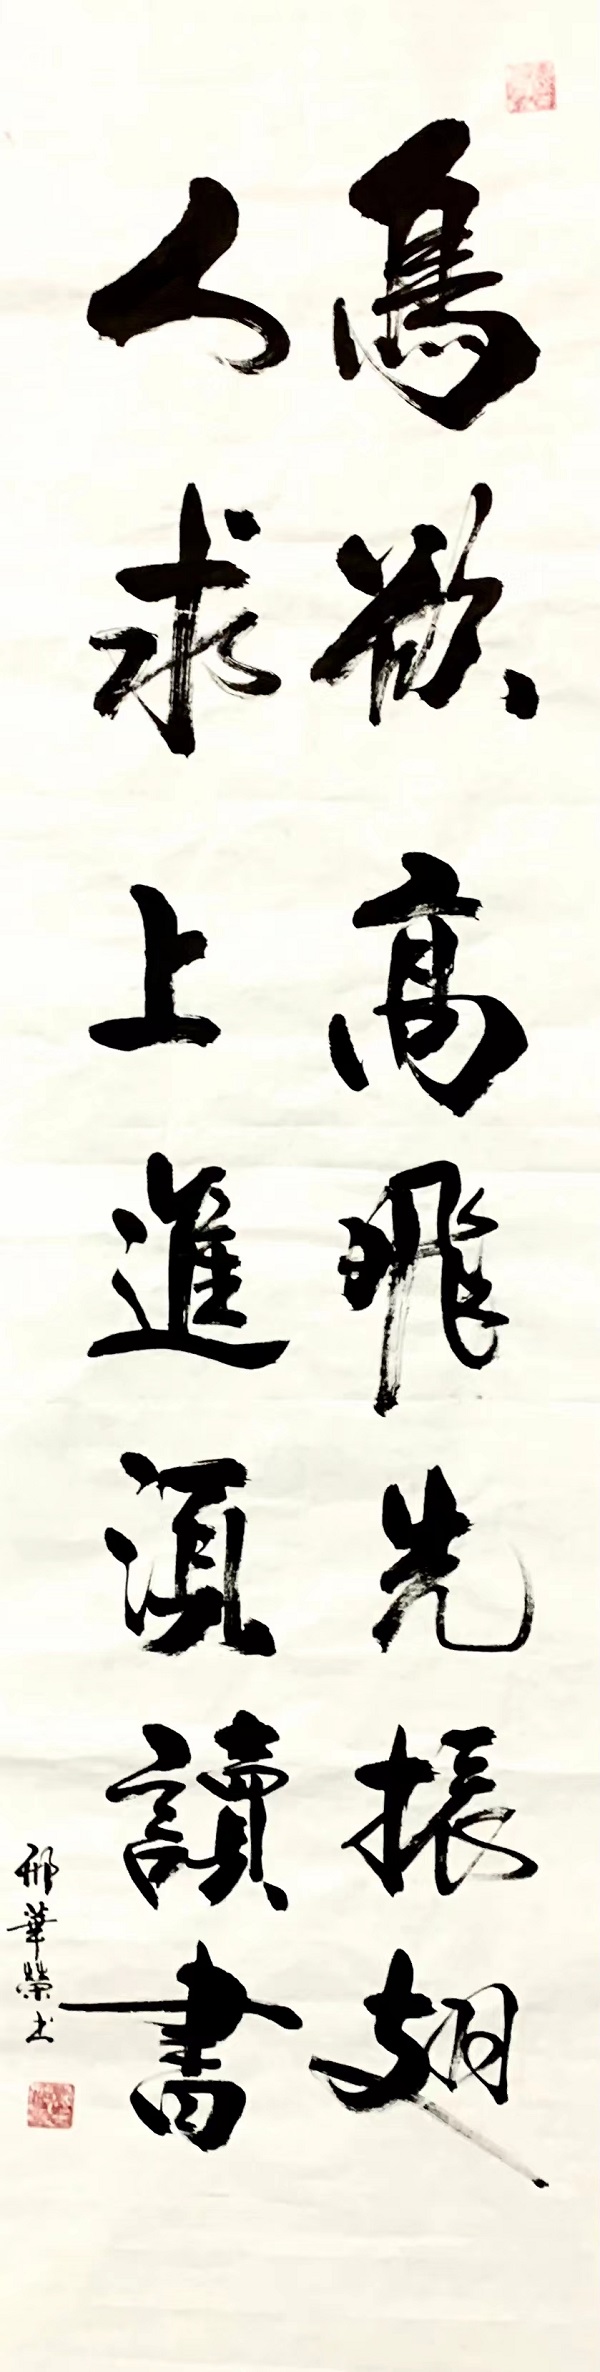 鳥欲高飛先振翅
人求上進須讀書
邢華榮书